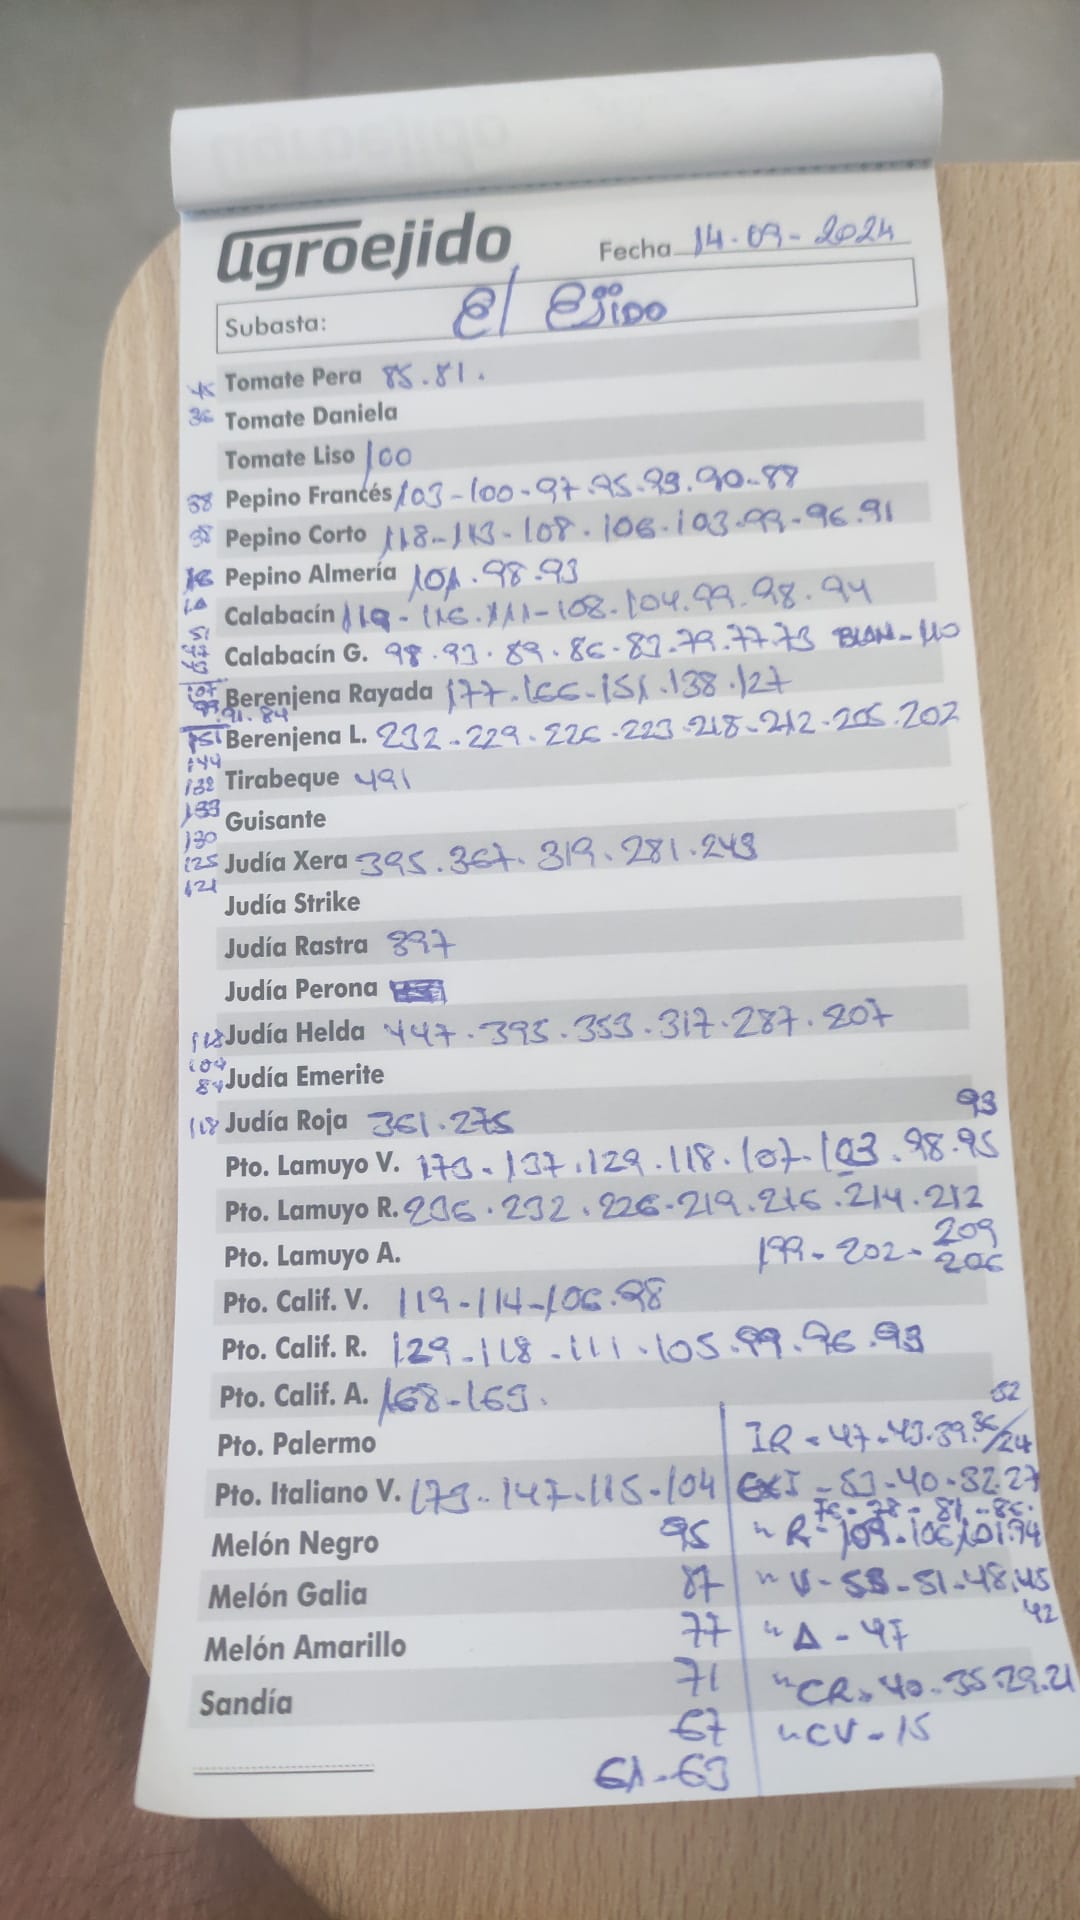 agroejido
Fecha 14-09-2024
Subasta: El Ejido
45 Tomate Pera 85.81.
36 Tomate Daniela
Tomate Liso 100
38 Pepino Francés 103-100-97.95.93.90-88
38 Pepino Corto 118-113-108.106.103.99-96.91
16 Pepino Almería 101.98.93
10 Calabacín 119-116.111-108.104.99.98.94
51
47
45 Calabacín G. 98.93.89.86-83.79.77.73 BLAN-110
107 Berenjena Rayada 177.166-151.138.127
99.91.84
151 Berenjena L. 232-229.226-223-218-212-205.202
144
138 Tirabeque 491
133 Guisante
130
125 Judía Xera 395.367.319.281.243
121
Judía Strike
Judía Rastra 397
Judía Perona
118 Judía Helda 447.395.353.317.287.207
104
84 Judía Emerite
118 Judía Roja 361.275
93
Pto. Lamuyo V. 173-137.129.118.107-103.98.95
Pto. Lamuyo R. 236.232.226-219.216.214.212
209
Pto. Lamuyo A. 199-202-206
Pto. Calif. V. 119-114-106.98
Pto. Calif. R. 129-118-111.105.99.96.93
Pto. Calif. A. 168-169.
52
Pto. Palermo IR-47-43.39.36/24
Pto. Italiano V. 173-147-115-104 EXI-53-40-32.27
76-78-81-86.
Melón Negro 95 " R-109-106,101.94
Melón Galia 87 " V-53-51-48.45
42
Melón Amarillo 77 " A-47
Sandía 71 " CR-40-35.29.21
67 " CV-15
61-63